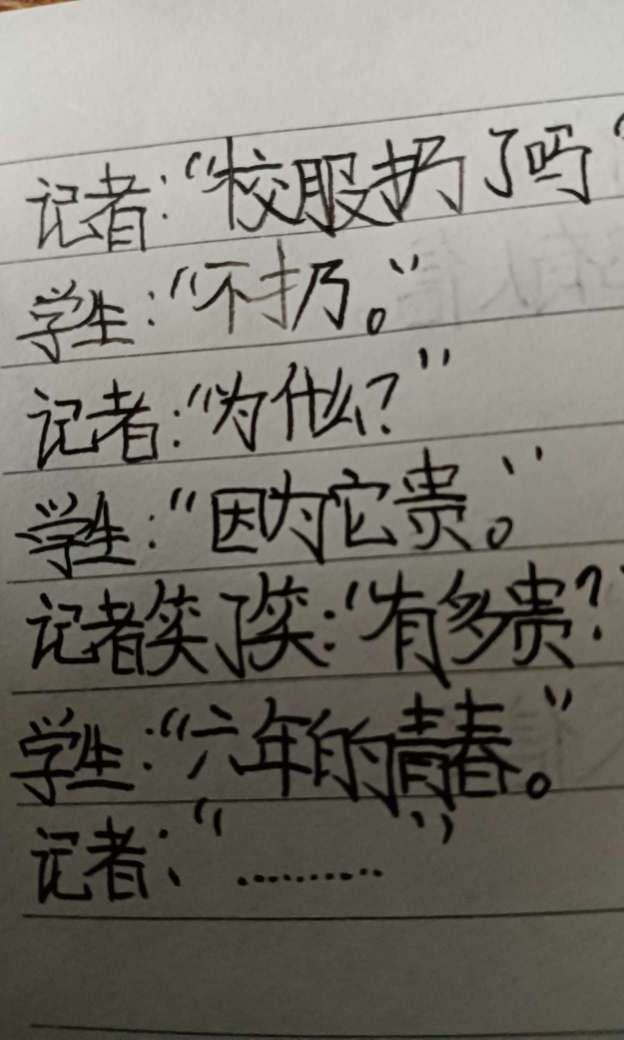 记者:“校服扔了吗“
学生:“不扔。”
记者:“为什么?”
学生:“因为它贵。”
记者笑了笑:“有多贵?
学生:“六年的青春。”
记者:“..........”